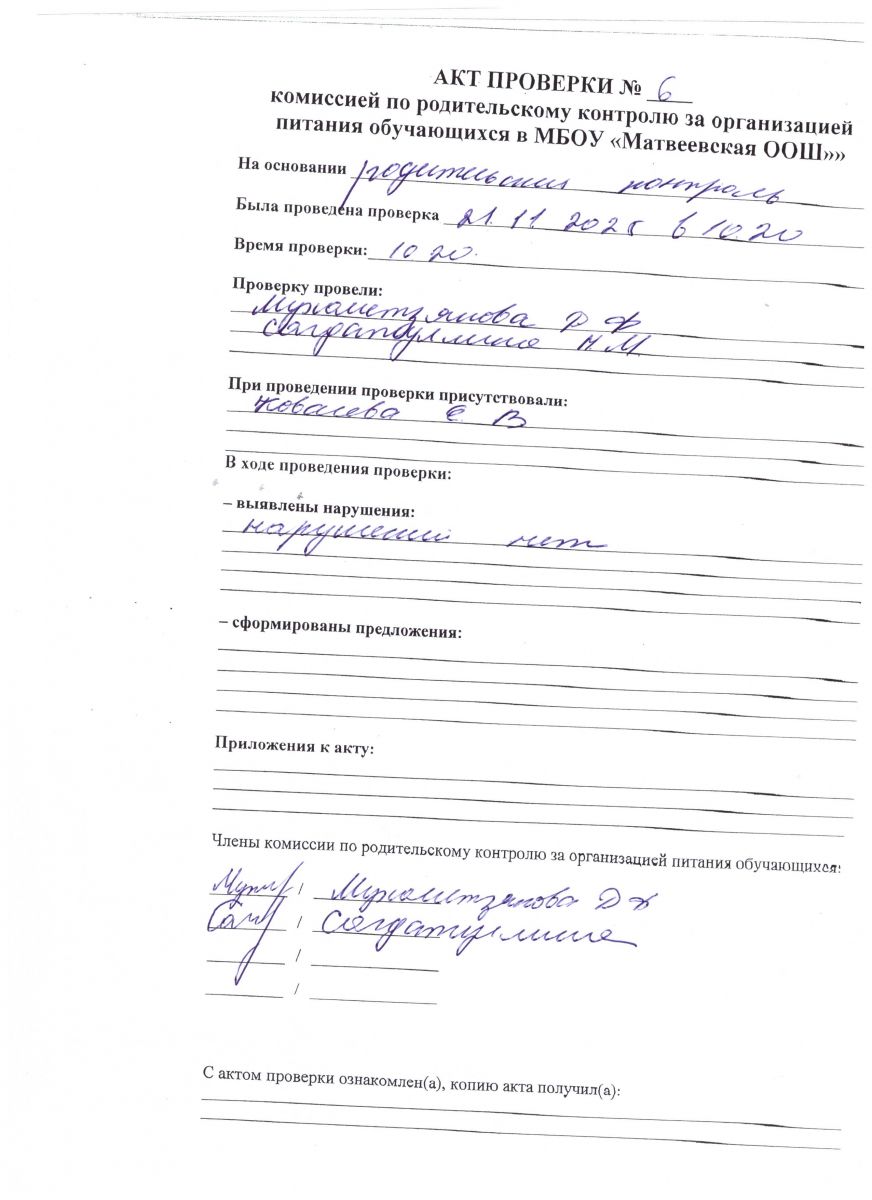 АКТ ПРОВЕРКИ № 6
комиссией по родительскому контролю за организацией
питания обучающихся в МБОУ «Матвеевская ООШ»»
На основании родительский контроль
Была проведена проверка 21.11 2025 в 10.20
Время проверки: 10 20.
Проверку провели:
Мухаметзянова Д Ф
Сагдатуллина Н М
При проведении проверки присутствовали:
Ковалева Е В
В ходе проведения проверки:
– выявлены нарушения:
нарушений нет
– сформированы предложения:
Приложения к акту:
Члены комиссии по родительскому контролю за организацией питания обучающихся:
/ Мухаметзянова Д Ф
/ Сагдатуллина
/
/
С актом проверки ознакомлен(а), копию акта получил(а):